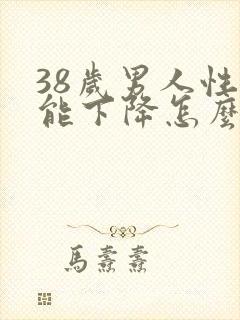 38歲男人性
能下降怎麼
馬纛纛